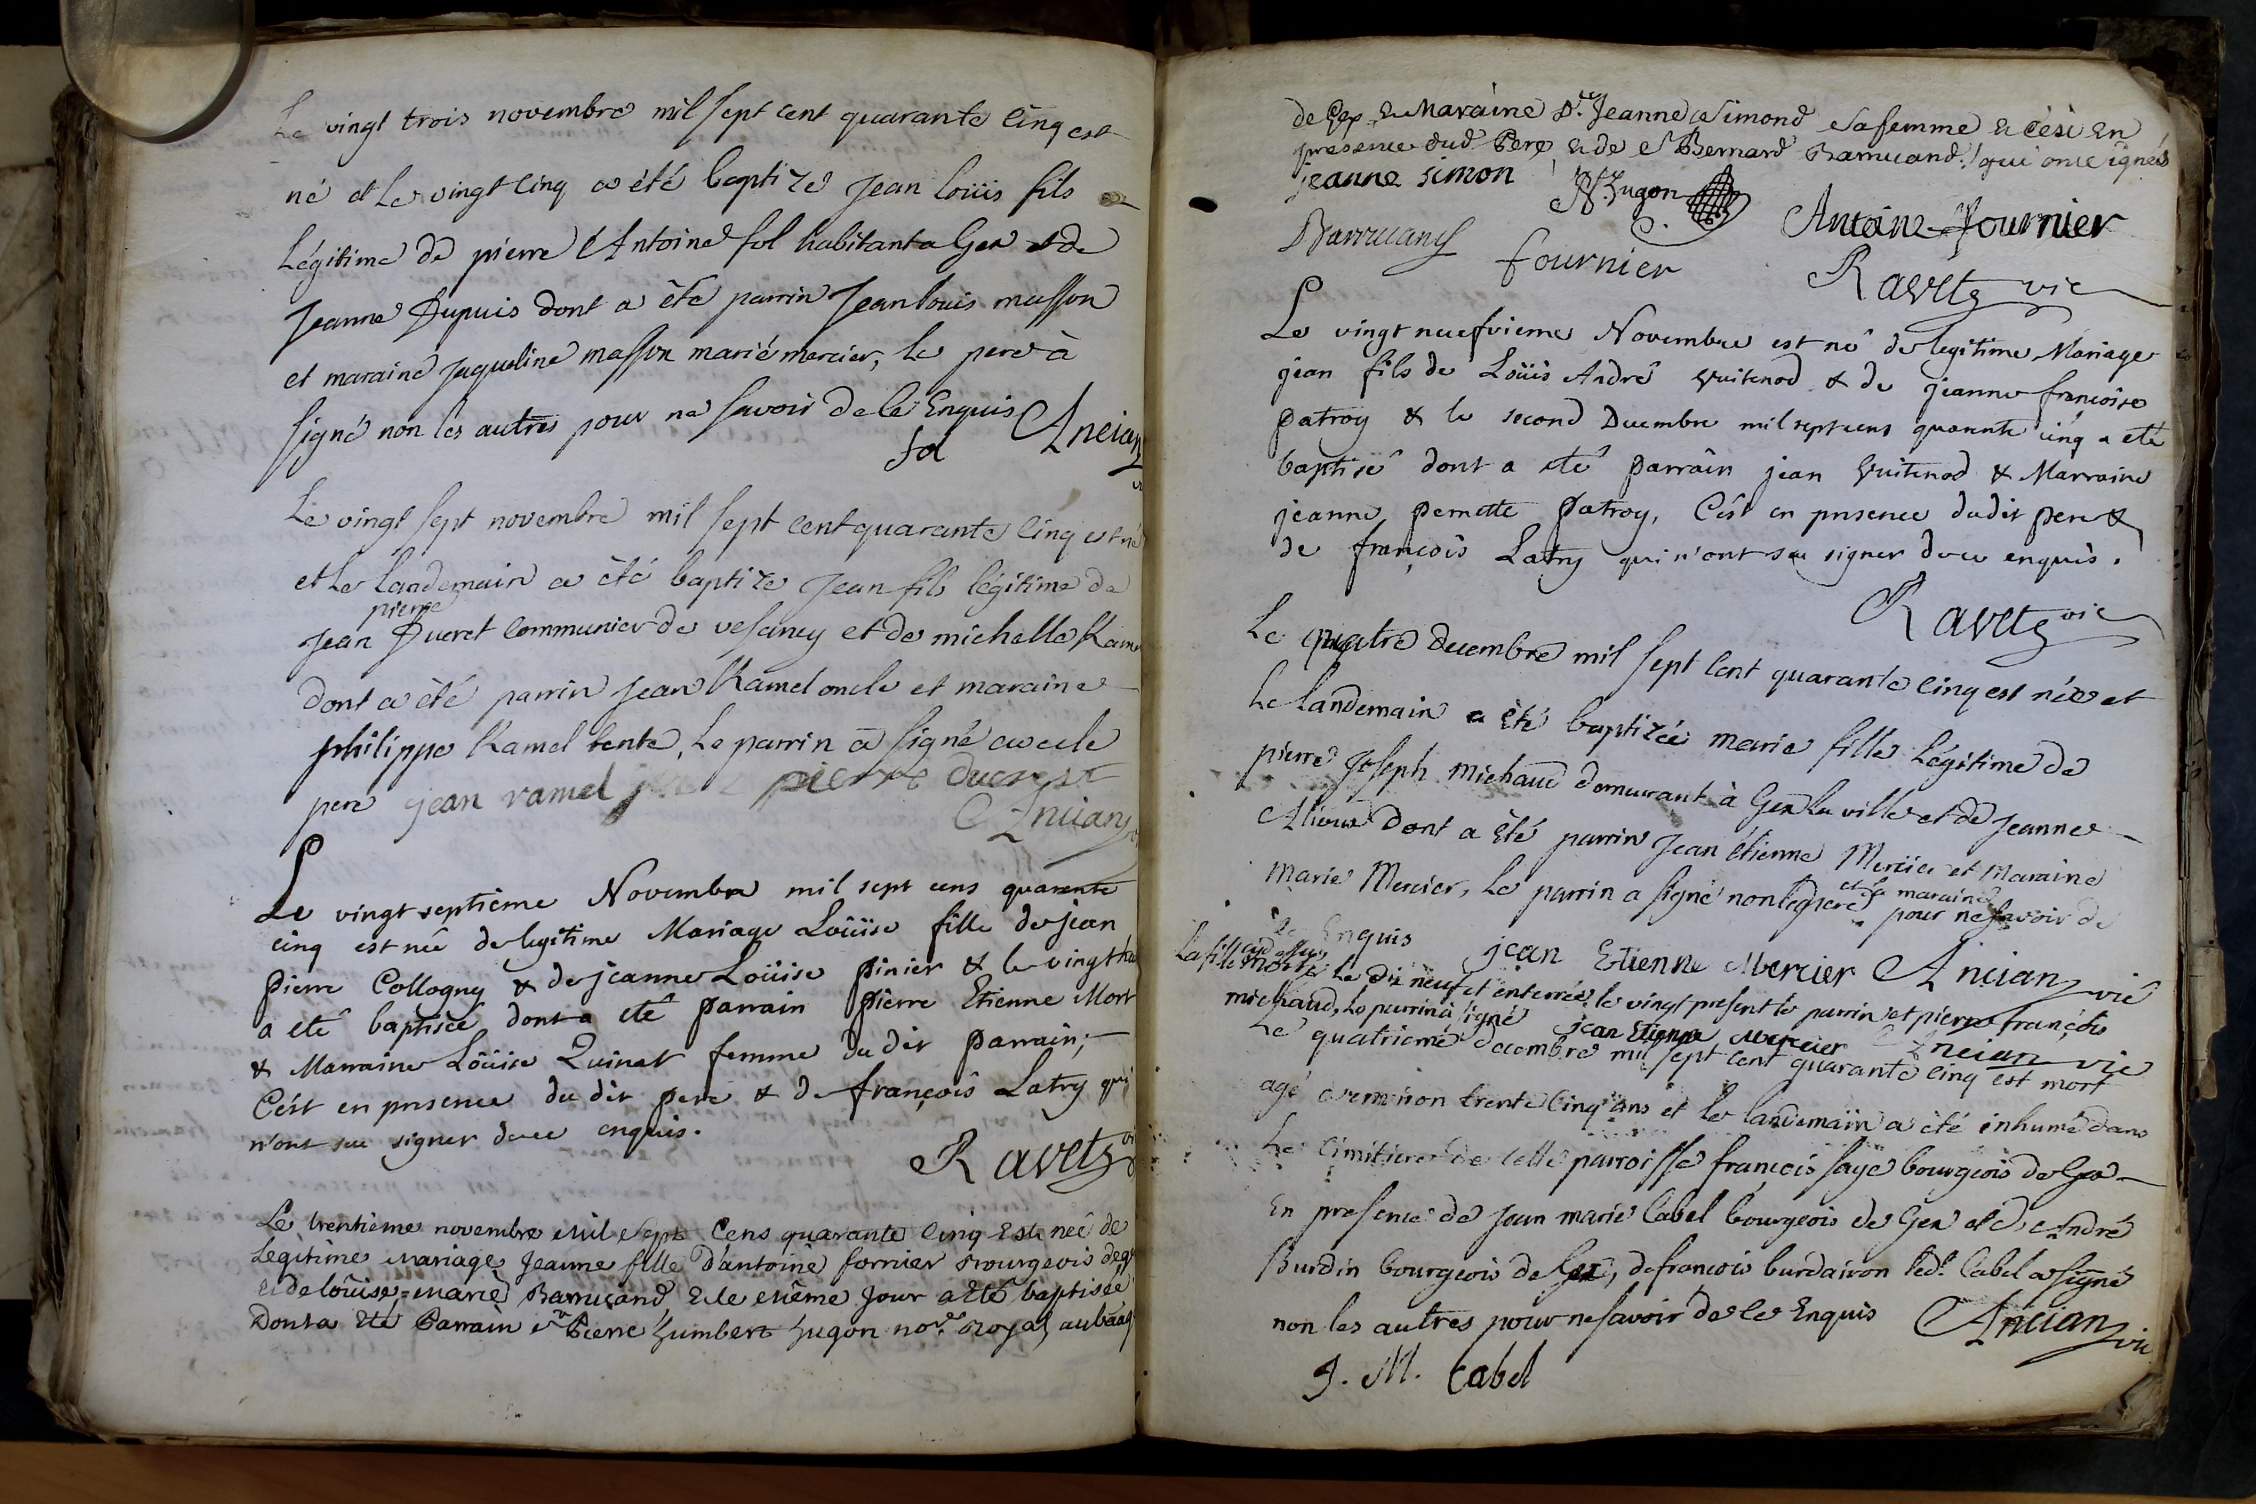 Le vingt trois novembre mil sept cent quarante cinq est
né et le vingt cinq a été baptizé jean loüis fils
légitime de pierre Antoine fol habitant a Gex et de
jeanne Dupuis dont a été parrin jean louis masson
et maraine jaqueline masson marié mercier, le pere à
signé non les autres pour ne savoir de ce Enquis
fol Ancian
Le vingt sept novembre mil sept cent quarante cinq est né
et le landemain a été baptizé jean fils légitime de
jean pierre Ducret communier de vesancy et de michelle Kamel
dont a été parrin jean Kamel oncle et maraine
philippe Kamel tente, Le parrin a signé avec le
pere jean ramel pierre ducrest
Ancian
Le vingt septieme Novembre mil sept cens quarente
cinq est née de legitime Mariage Loüise fille de jean
pierre Collogny & de jeanne Loüise pinier & le vingt hui
a eté baptisée dont a eté parrain pierre Etienne Mort
& Marraine Loüise Quinat femme du dit parrain;
C'est en presence du dit pere & de françois Latry qui
n'ont su signer de ce enquis.
Ravetz vi
Le trentieme novembre mil sept Cens quarante Cinq Est neé de
Legitime mariage Jeanne fille D'antoine fornier Bourgeois de gex
et de loüise-marie Barrucand et le même Jour a Eté baptisée
Dont a Eté Parrain sr Pierre humbert hugon nore Royal au baag
de Gex et Maraine Dlle Jeanne Simond sa femme et Cesi en
presence dud Pere et de sr Bernard Barrucand qui ont signés
jeanne simon P. h. hugon
Barrucand fournier Antoine Fournier
Ravetz vic
Le vingt neufvieme Novembre est né de legitime Mariage
jean fils de Loüis André Vuitenod & de jeanne françoise
patroy & le second Decembre mil sept cens quarente cinq a eté
baptisé dont a eté parrain jean Vuitenod & Marraine
jeanne pernette patroy, C'est en presence du dit pere &
de françois Latry qui n'ont su signer de ce enquis.
Ravetz vic
Le quatre decembre mil sept cent quarante cinq est née et
le landemain a été baptizée marie fille légitime de
pierre joseph michaud demeurant à Gex la ville et de jeanne
dont a été parrin jean étienne Mercier et Maraine
marie Mercier, le parrin a signé non le pere et la maraine pour ne savoir de
ce Enquis jean Etienne Mercier Ancian vic
La fille cy dessus
est morte le dix neuf et enterrée le vingt present le parrin et pierre françois
michaud, Le parrin à signé jean Etienne Mercier Ancian vic
Le quatrieme decembre mil sept cent quarante cinq est mort
agé environ trente cinq ans et le landemain a été inhumé dans
le cimitiere de cette parroisse françois saye bourgeois de Gex
En presence de jean marie Cabel bourgeois de Gex et de André
Burdin bourgeois de Gex, de francois burdairon led. Cabel a signé
non les autres pour ne savoir de ce Enquis Ancian vic
J. M. Cabel